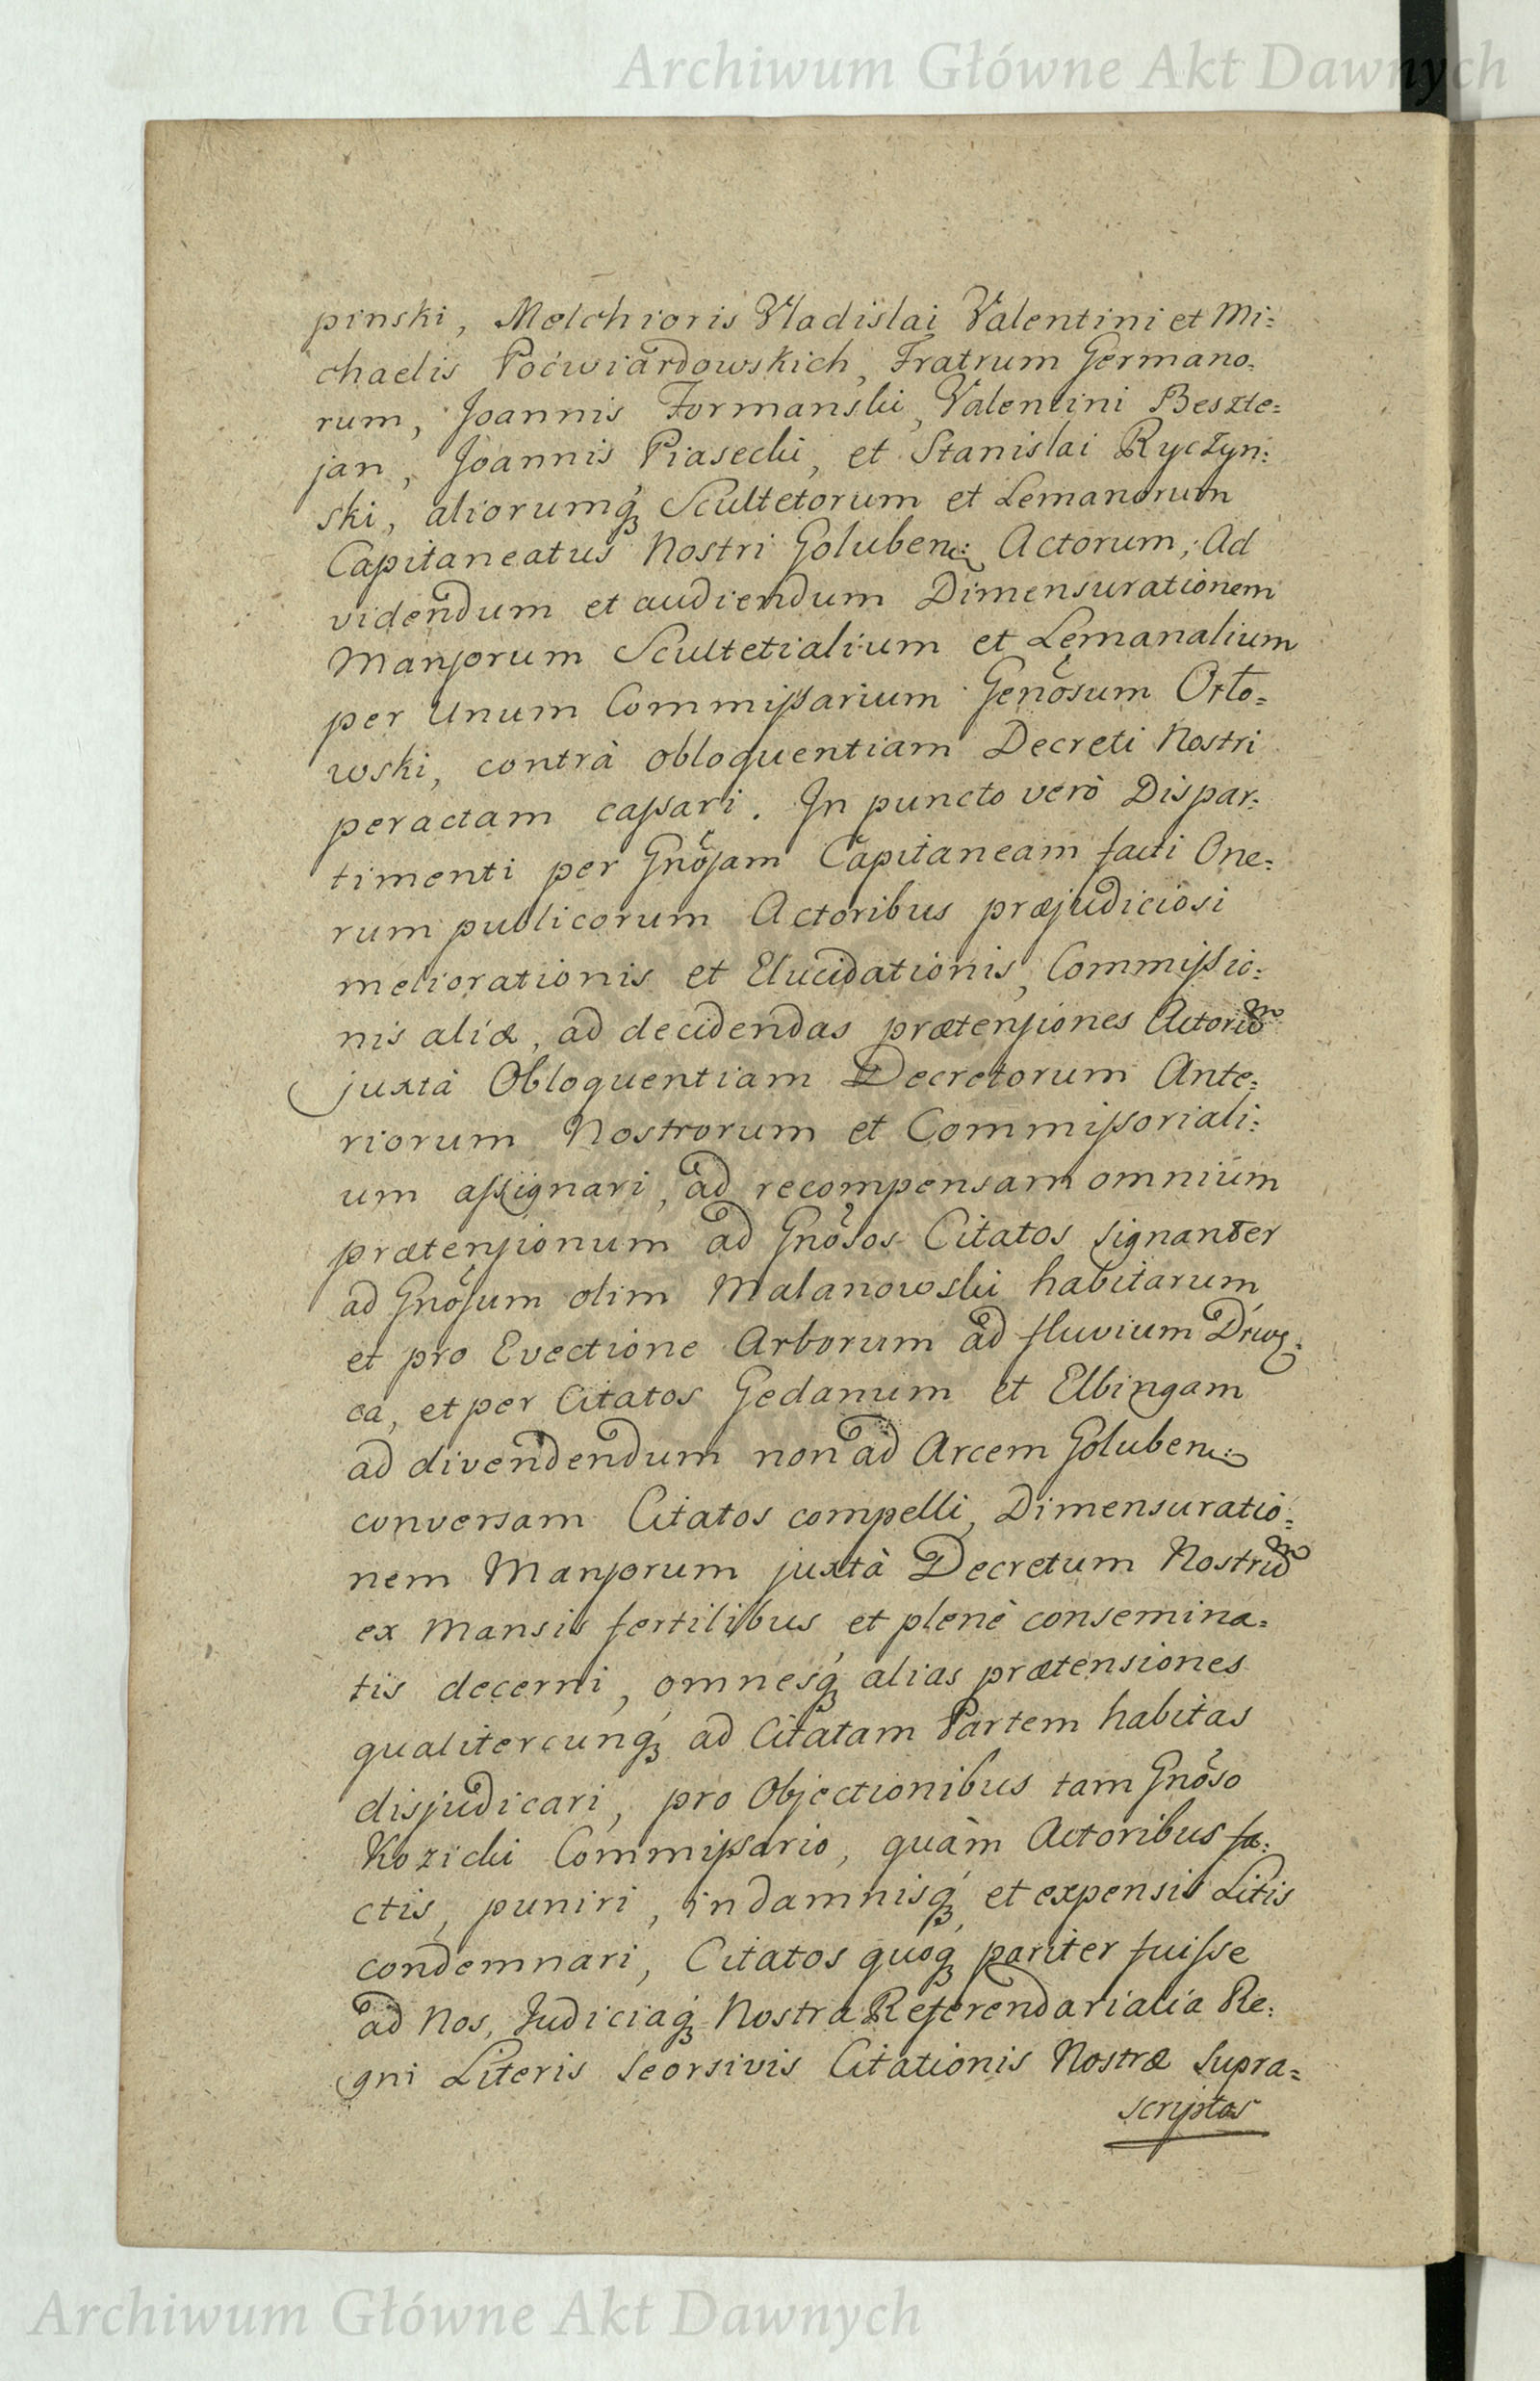 Archiwum Główne Akt Dawnych
pinski, Melchioris Vladislai Valentini et Mi=
chaelis Poćwiardowskich, Fratrum Germano=
rum, Joannis Formanski, Valentini Beszte=
jan, Joannis Piasecki, et Stanislai Ryczyn=
ski, aliorumq́ꝫ Scultetorum et Lemanorum
Capitaneatus Nostri Goluben: Actorum; Ad
videndum et audiendum Dimensurationem
Mansorum Scultetialium et Lemanalium
per Unum Commissarium Genõsum Orło=
wski, contrà obloquentiam Decreti Nostri
peractam cassari. In puncto verò Dispar=
timenti per Gnõsam Capitaneam facti One=
rum publicorum Actoribus præjudiciosi
meliorationis et Elucidationis, Commissio=
nis aliæ, ad decidendas prætensiones Actorum
juxtà Obloquentiam Decretorum Ante=
riorum Nostrorum et Commissoriali=
um assignari, ad recompensam omnium
prætensionum ad Gnõsos Citatos signanter
ad Gnõsum olim Malanowski habitarum
et pro Evectione Arborum ad fluvium Drwę=
ca, et per Citatos Gedanum et Elbingam
ad divendendum non ad Arcem Goluben:
conversam Citatos compelli, Dimensuratio=
nem Mansorum juxtà Decretum Nostrum
ex Mansis fertilibus et plenè consemina=
tis decerni, omnesq́ꝫ alias prætensiones
qualitercunq́ꝫ ad Citatam Partem habitas
disjudicari, pro Objectionibus tam Gnõso
Kozicki Commissario, quàm Actoribus fa=
ctis, puniri, indamnisq́ꝫ et expensis Litis
condemnari, Citatos quoq́ꝫ pariter fuisse
ad Nos, Judiciaq́ꝫ Nostra Referendarialia Re=
gni Literis seorsivis Citationis Nostræ supra=
scriptos
Archiwum Główne Akt Dawnych